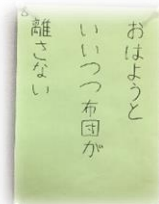 おはようと
いいつつ布団が
離さない